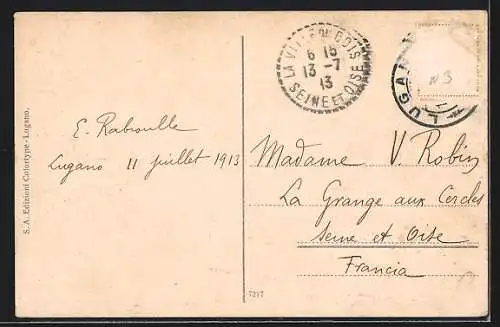 LA VILLE DU BOIS
6 15
13 - 7
13
SEINE ET OISE
LUGAN
N 3
E. Raboulle
Lugano 11 juillet 1913
Madame V. Robin
La Grange aux Cercles
Seine et Oise
Francia
S. A. Edizioni Colortype - Lugano.
7217